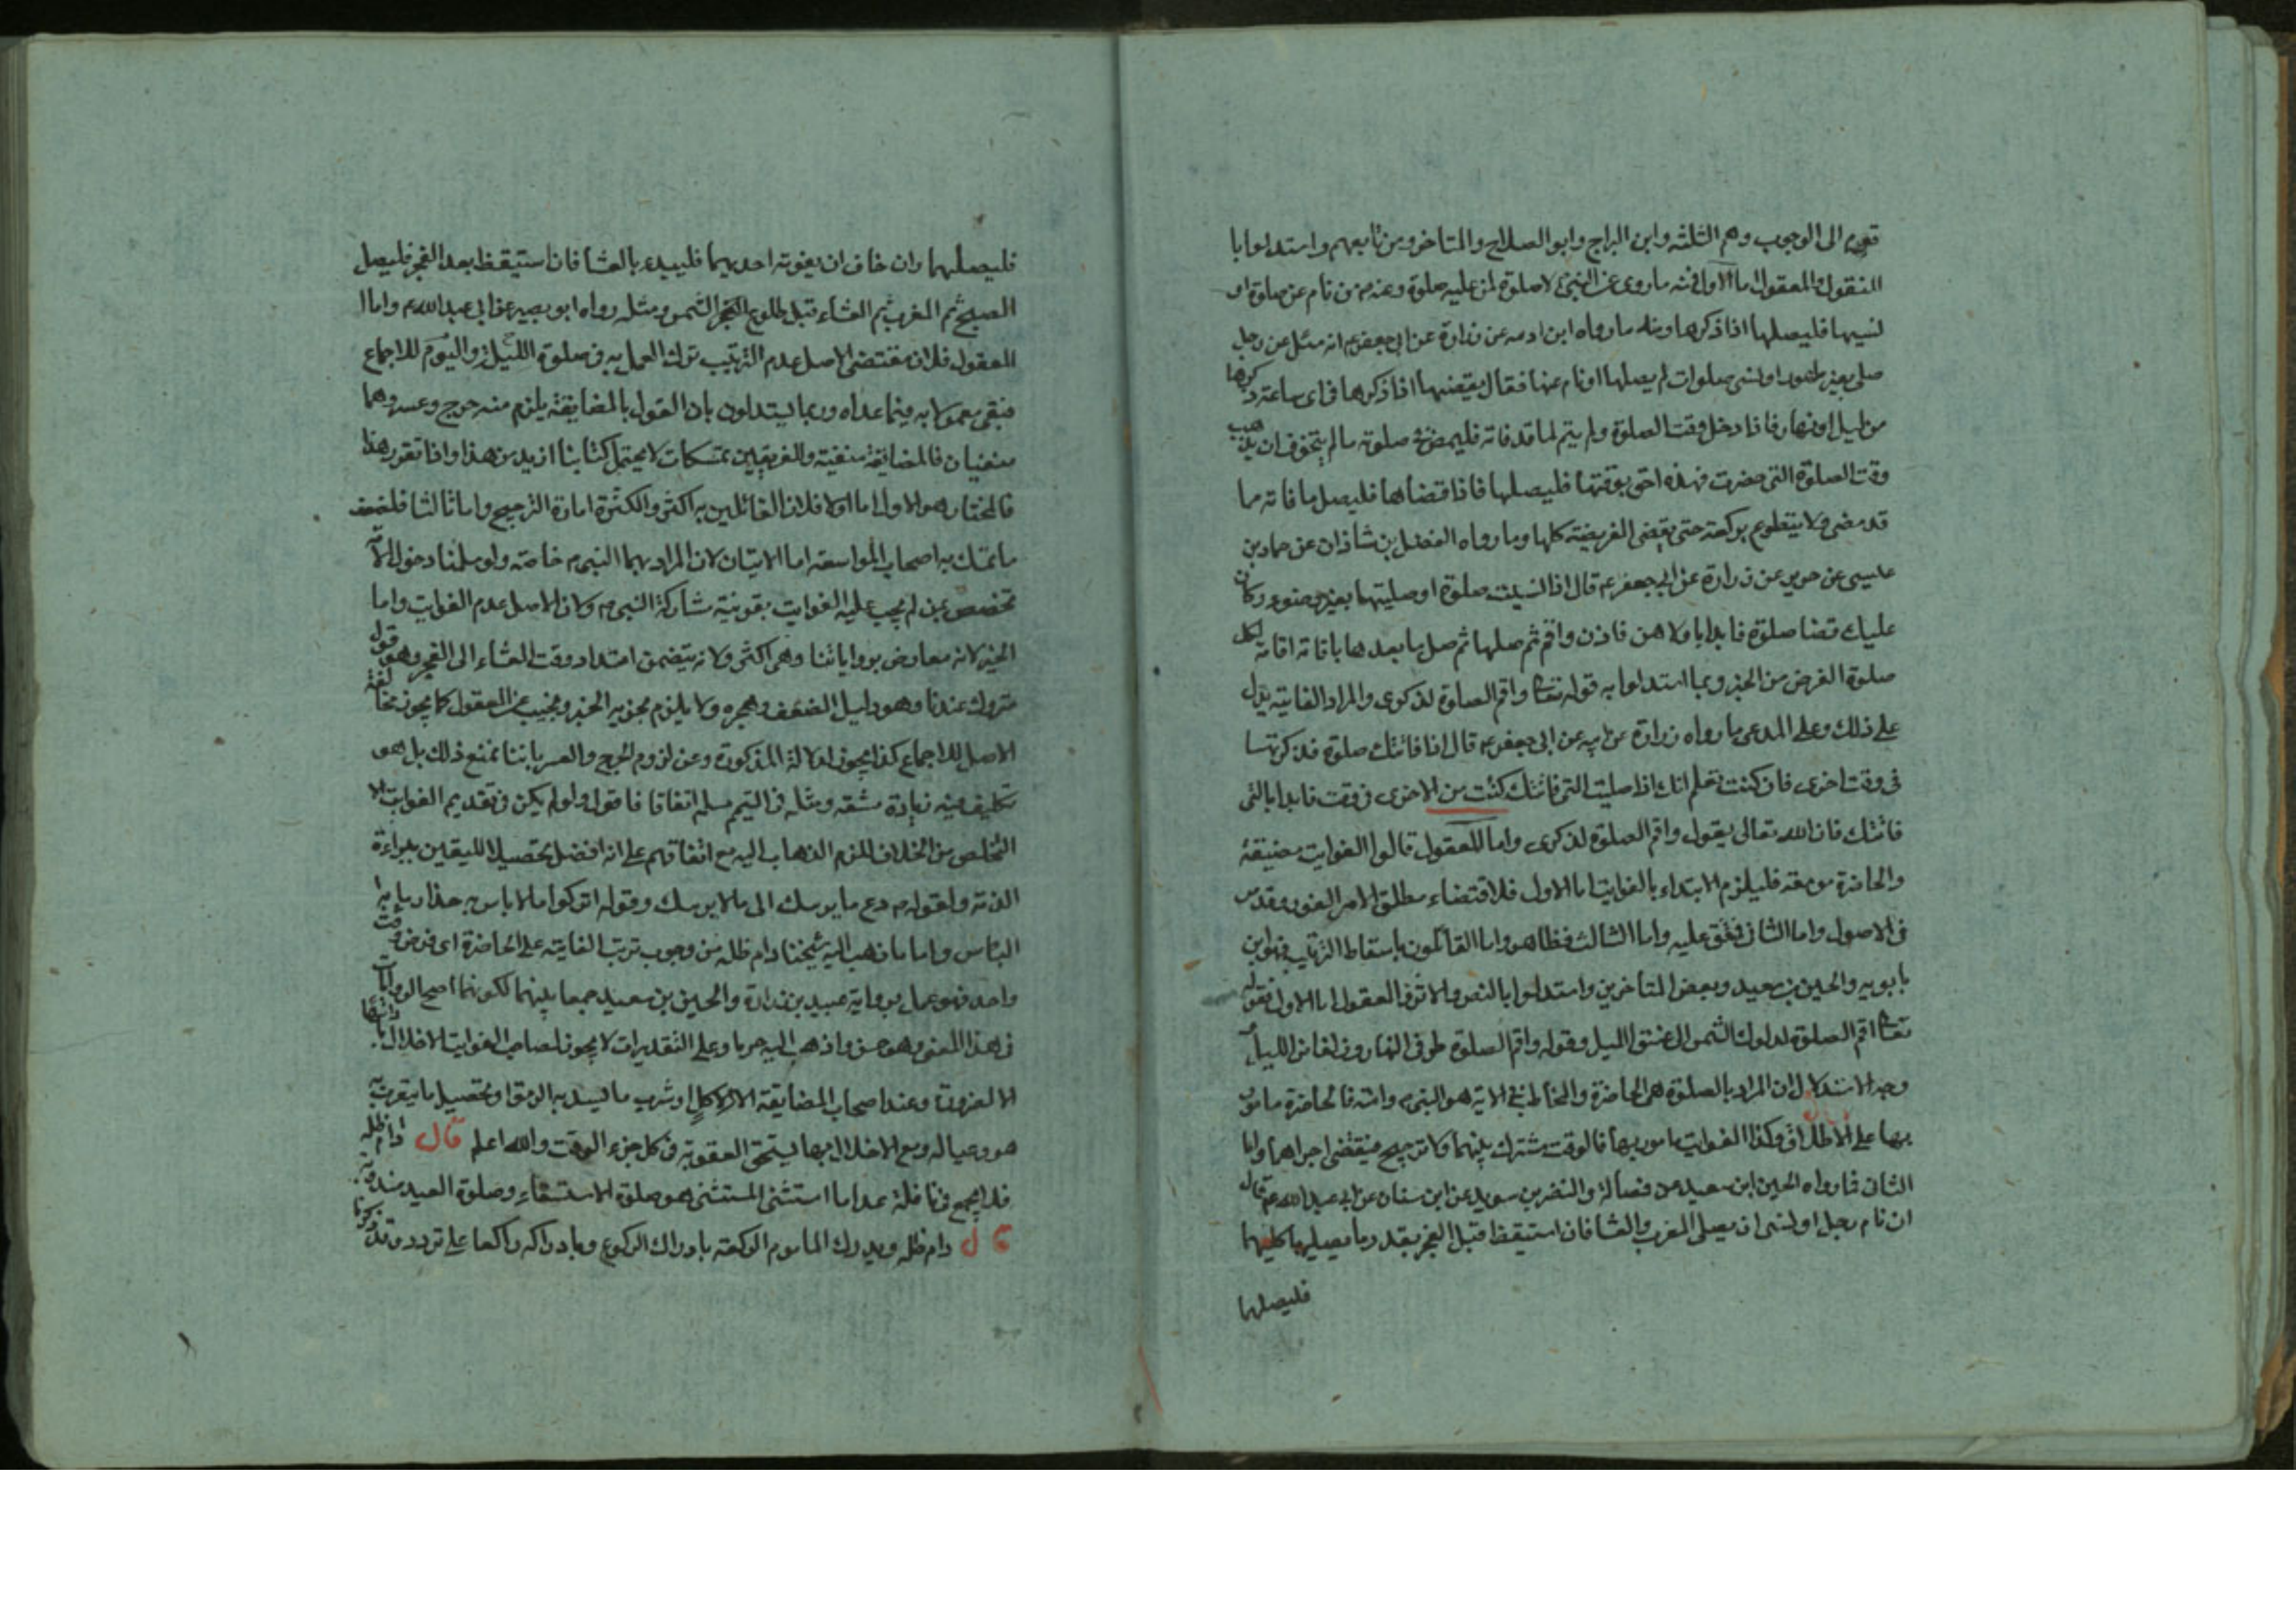 قوم الى الوجوب وهم الثلثه وابن البراج وابو الصلاح والمتاخرون من تابعهم واستدلوا با
المنقول والمعقول اما الاول فمنه ما روى عن النبى لا صلوة لمن عليه صلوة وعنه من نام عن صلوة او
نسيها فليصلها اذا ذكرها ومنه ما رواه ابن اذينه عن زرارة عن ابى جعفر ع انه سئل عن رجل
صلى بغير طهور او نسى صلوات لم يصلها او نام عنها فقال يقضيها اذا ذكرها فى اى ساعة ذكرها
من ليل او نهار فاذا دخل وقت الصلوة ولم يتم لما قد فاته فليمض صلوته ما لم يتخوف ان يذهب
وقت الصلوة التى حضرت فهذه احق بوقتها فليصلها فاذا قضاها فليصل ما فاته مما
قد مضى ولا يتطوع بركعة حتى يقضى الفريضة كلها وما رواه الفضل بن شاذان عن حماد بن
عليسى عن حريز عن زرارة عن ابى جعفر ع قال اذا نسيت صلوة او صليتها بغير وضوء وكان
عليك قضا صلوة فابدا باولاهن فاذن واقم ثم صلها ثم صل ما بعدها باقامة اقامة لكل
صلوة الغرض من الخبر وبما استدلوا به قوله تعالى واقم الصلوة لذكرى والمراد الفايته يدل
على ذلك وعلى المدعى ما رواه زرارة عن ابيه عن ابى جعفر ع قال اذا فاتتك صلوة فذكرتها
فى وقت اخرى فان كنت تعلم انك اذا صليت التى فاتتك كنت من الاخرى فى وقت فابدا بالتى
فاتتك فان الله تعالى يقول واقم الصلوة لذكرى واما المعقول قالوا الفوايت مضيقة
والحاضرة موسعة فليلزم الابتداء بالفوايت اما الاول فلاقتضاء مطلق الامر الفور وقد مر
فى الاصول واما الثانى فمتفق عليه واما الثالث فظاهر واما القائلون باسقاط الترتيب فهو ابن
بابويه والحسين بن سعيد وبعض المتاخرين واستدلوا بالنص والاثر والعقول اما الاول فقوله
تعالى اقم الصلوة لدلوك الشمس الى غسق الليل وقوله واقم الصلوة طرفى النهار وزلفا من الليل
وجه الاستدلال ان المراد بالصلوة هى الحاضرة والمخاطب فى الاية هو النبى ص وامته فالحاضرة مامور
بها على الاطلاق وكذا الفوايت مامور بها فالوقت مشترك بينهما ولا ترجيح فيقتضى اجراهما واما
الثانى فما رواه الحسين ابن سعيد عن فضالة والنضر بن سويد عن ابن سنان عن ابى عبد الله ع قال
ان نام رجل او نسى ان يصلى المغرب والعشا فان استيقظ قبل الفجر بقدر ما يصليهما كليهما
فليصلهما
فليصلهما وان خاف ان يفوته احديهما فليبدء بالعشا فان استيقظ بعد الفجر فليصل
الصبح ثم المغرب ثم العشاء قبل طلوع الشمس ومثله رواه ابو بصير عن ابى عبد الله ع واما ا
المعقول فلان مقتضى الاصل عدم الترتيب ترك العمل به فى صلوة الليلة واليوم للاجماع
فبقى معمولا به فيما عداه وربما يستدلون بان القول بالمضايقة يلزم منه حرج وعسر وهما
منفيان فالمضايقة منفية وللفريقين تمسكات لا يحتمل كتابنا ازيد من هذا واذا تقرر هذا
فالمختار هو الاول اما اولا فلان القائلين به اكثر والكثرة امارة الترجيح واما ثالثا فلضعف
ما تمسك به اصحاب المواسعة اما الايتان لان المراد بهما النبى ص خاصة ولو سلمنا دخول الامة
تخصص بمن لم يجب عليه الفوايت بقرينة مشاركة النبى ص ولان الاصل عدم الفوايت واما
الخبر لانه معارض برواياتنا وهى اكثر ولانه يتضمن امتداد وقت العشاء الى الفجر وهو قول
متروك عندنا وهو دليل الضعف وهجره ولا يلزم تجويز الخبر ونجيب عن المعقول كما يجوز مخالفة
الاصل للاجماع كذا يجوز لدلالة المذكورة وعن لزوم الحرج والعسر باننا نمنع ذلك بل هو
تكليف فيه زيادة مشقة ومثله فى التيمم مسلم اتفاقا فاقول ولو لم يكن فى تقديم الفوايت الا
التخلص من الخلاف للزم الذهاب اليه مع اتفاقهم على انه افضل تحصيلا لليقين ببراءة
الذمة ولقوله ص دع ما يريبك الى ما لا يريبك وقوله اتركوا ما لا باس به حذار ما به ا
الباس واما ما ذهب اليه شيخنا دام ظله من وجوب ترتب الفايته على الحاضرة اى فرض وقت
واحد فهو عمل برواية عبيد بن زرارة والحسين بن سعيد جمعا بينهما لكونهما اصح الروايات
فى هذا المعنى وهو حسن واذهب اليه جريا وعلى التقديرات لا يجوز لصاحب الفوايت الاخلال
الا لضرورة وعند اصحاب المضايقة الا لاكل او شرب ما ليسد به الرمق او تحصيل ما يتقوت به
هو وعياله ومع الاخلال بها يستحق العقوبة فى كل جزء الوقت والله اعلم قال دام ظله
فلا يجمع فى نافلة عدا ما استثنى المستثنى هو صلوة الاستسقاء وصلوة العيد مندوبة
قال دام ظله ويدرك الماموم الركعة بادراك الركوع وبادراكه راكعا على تردد وقد ذكرنا